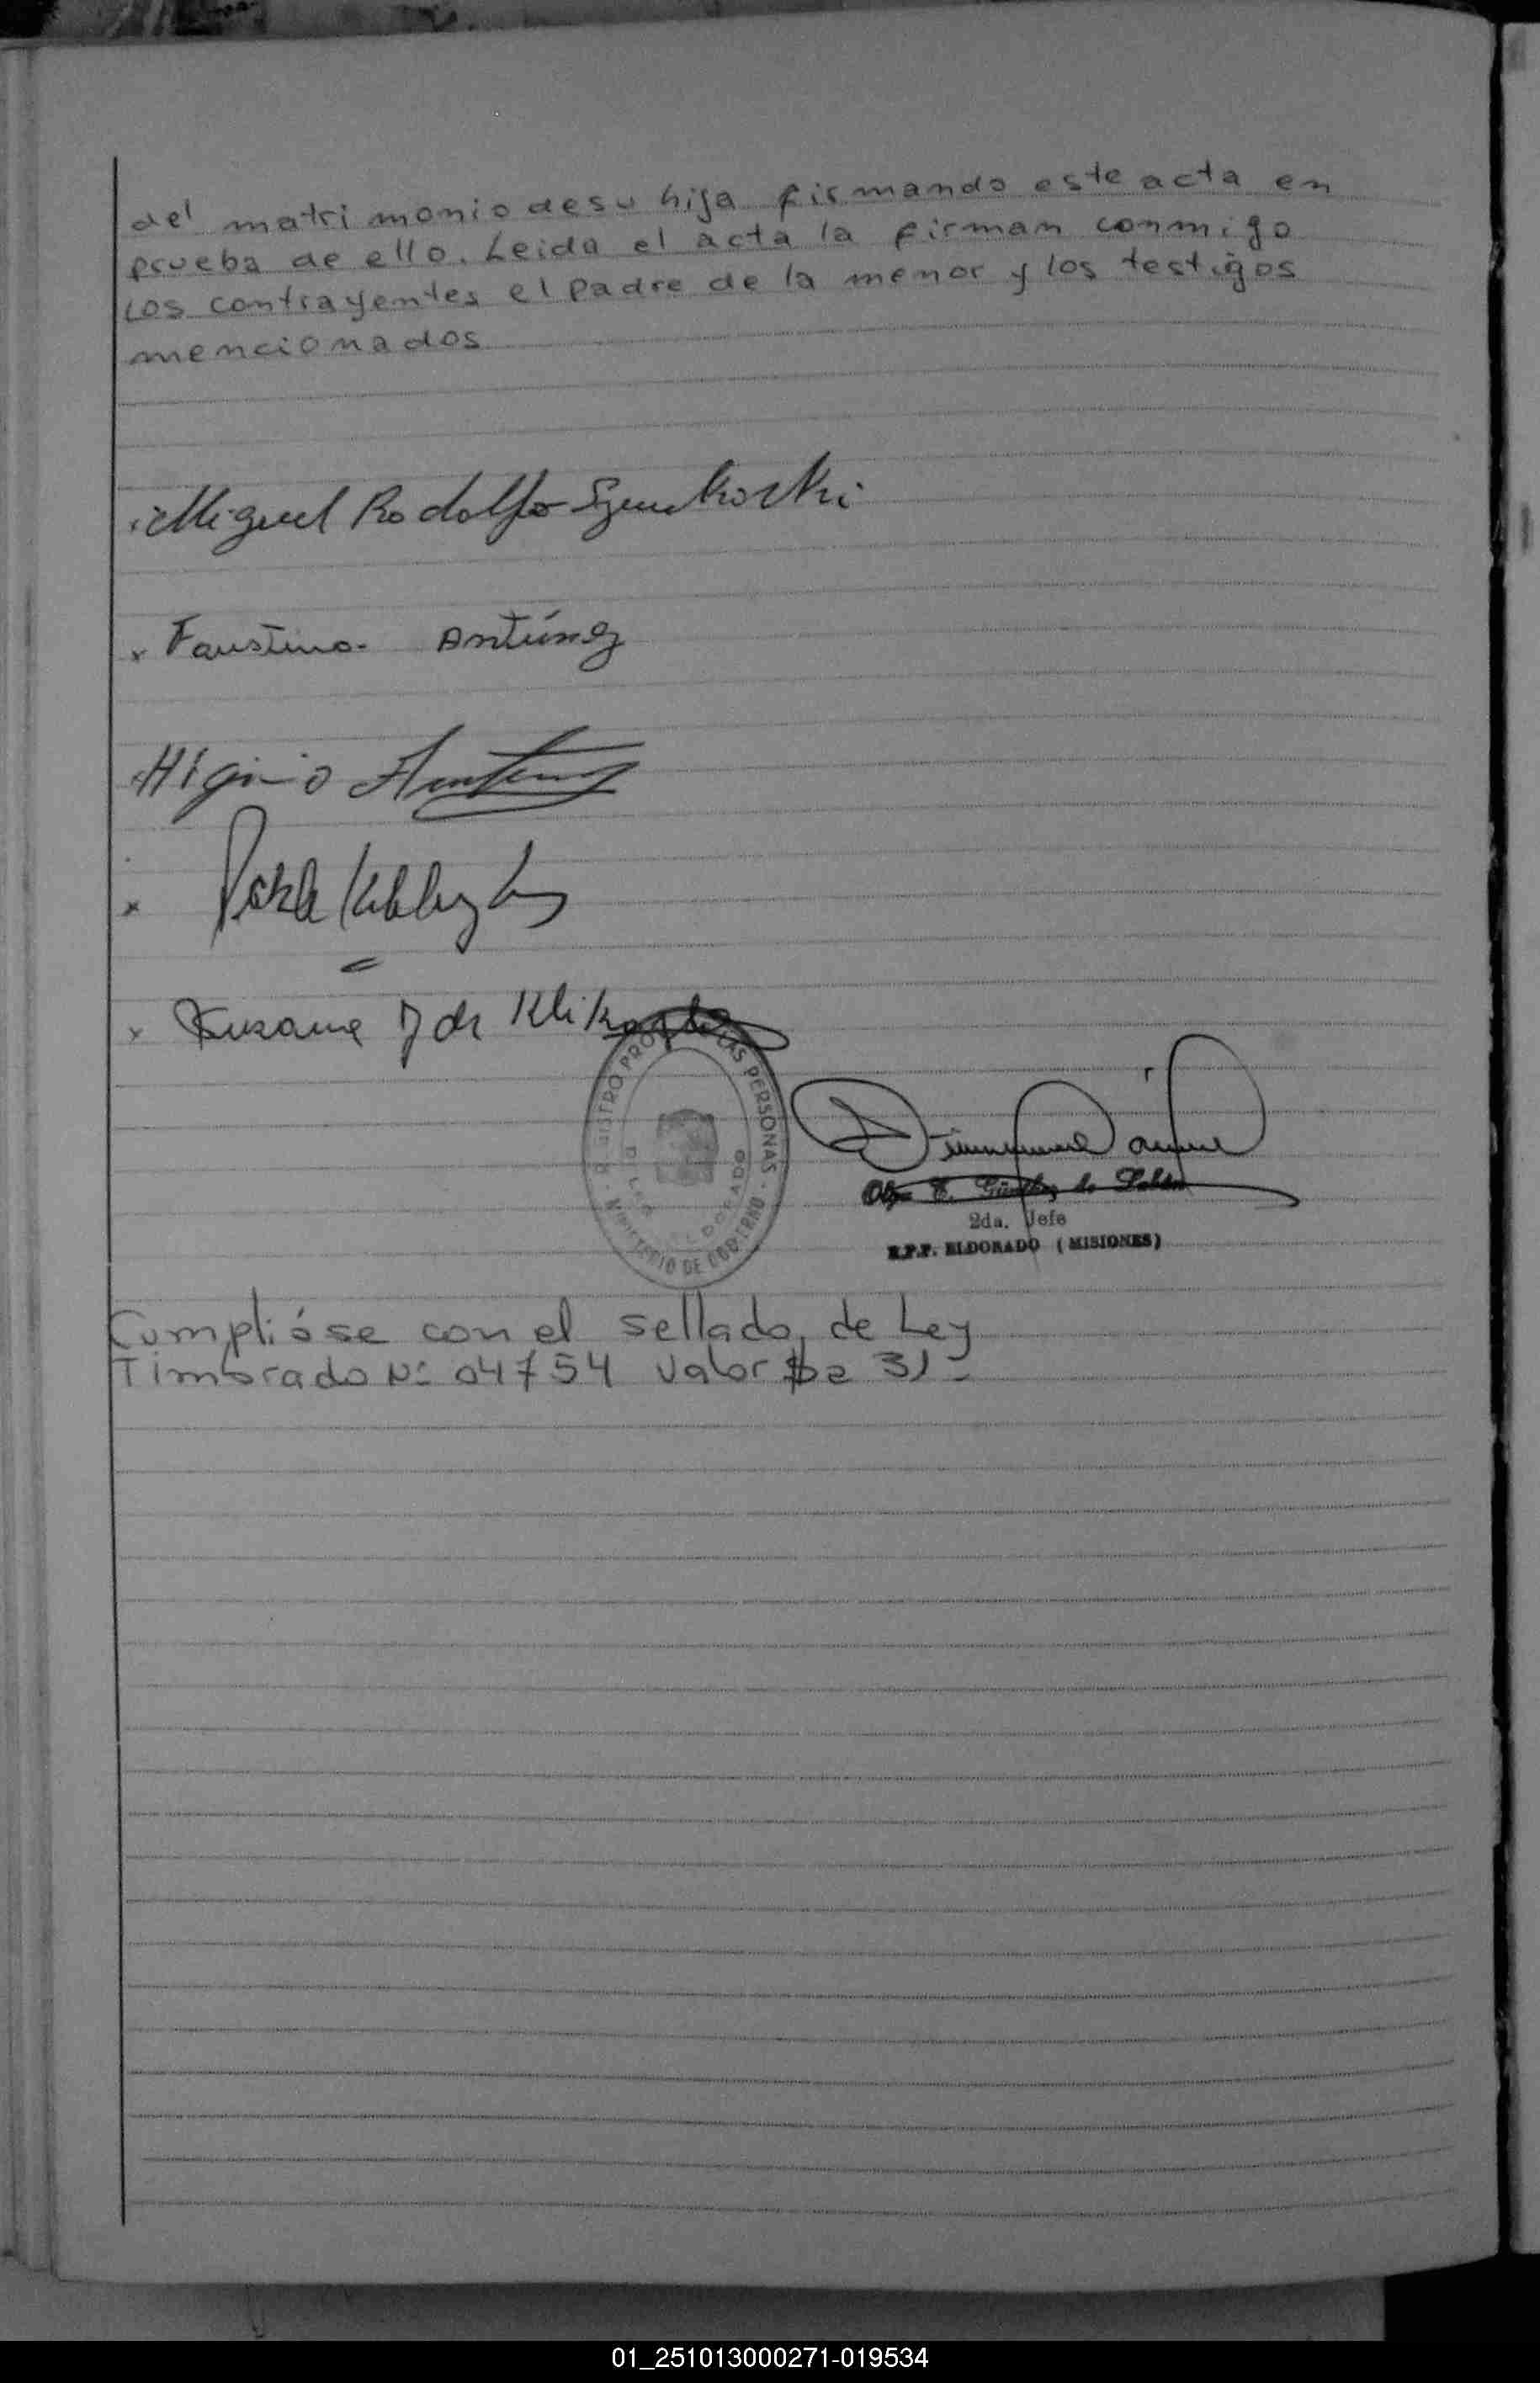 del matrimonio de su hija firmando este acta en
prueba de ello. Leida el acta la firman conmigo
Los contrayentes el padre de la menor y los testigos
mencionados
Miguel Rodolfo
x Faustina Antúnez
Higinio Antunez
x
x Susana J de
REGISTRO PRO LAS PERSONAS
MINISTERIO DE GOBIERNO
ELDORADO
Olga E. de
2da. Jefe
R.P.P. ELDORADO (MISIONES)
Cumplióse con el sellado de Ley
Timbrado Nº 04754 Valor $a 31-
01_251013000271-019534